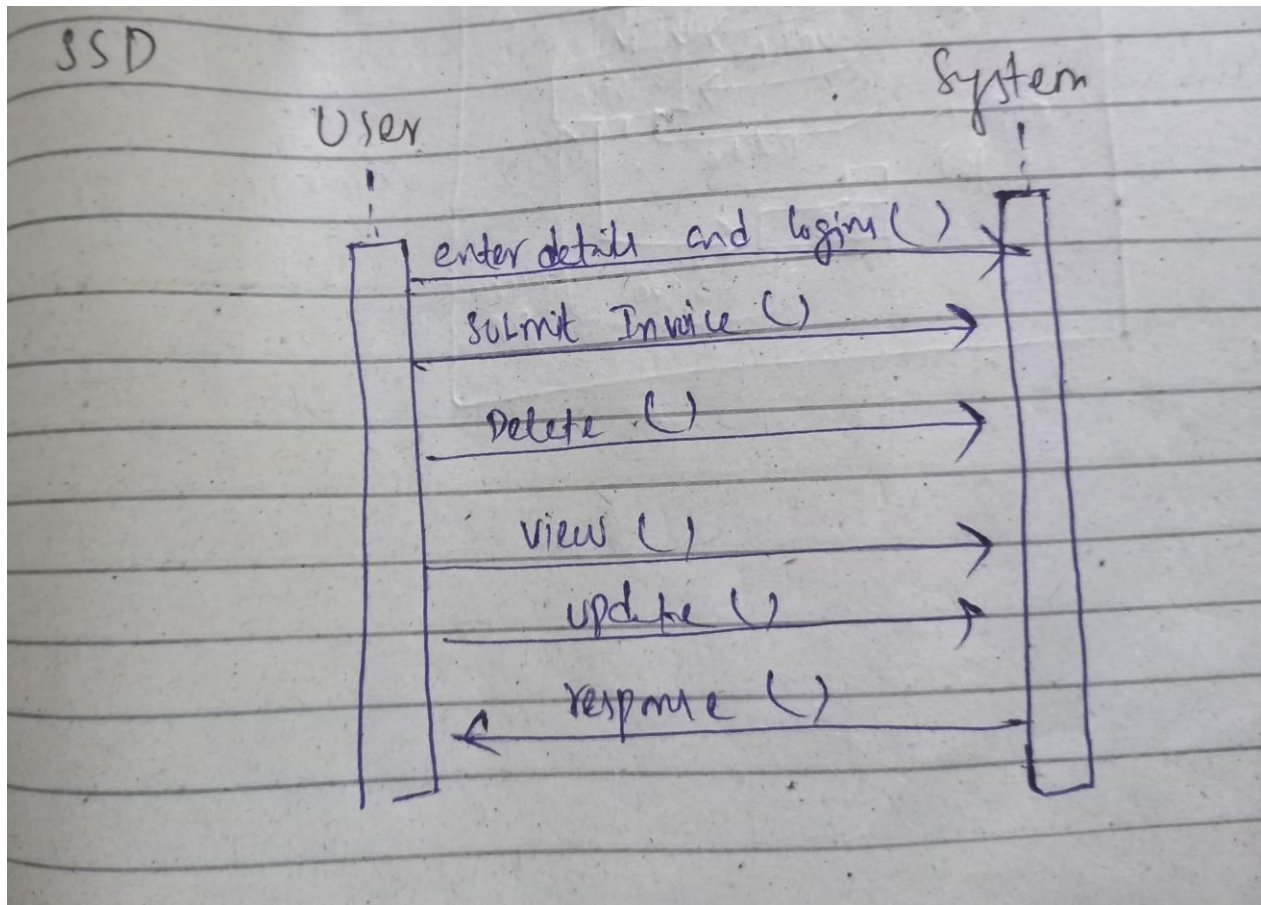 SSD
User
System
enter details and login ()
Submit Invoice ()
Delete ()
view ()
update ()
response ()